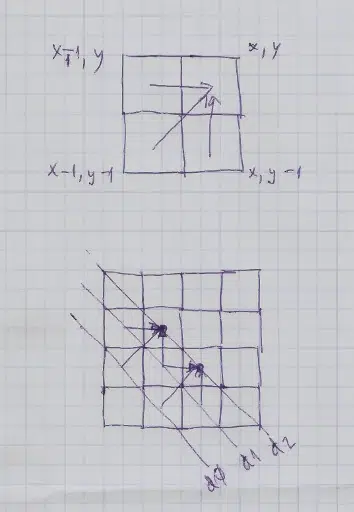 x-1, y
x, y
x-1, y-1
x, y-1
d0
d1
d2